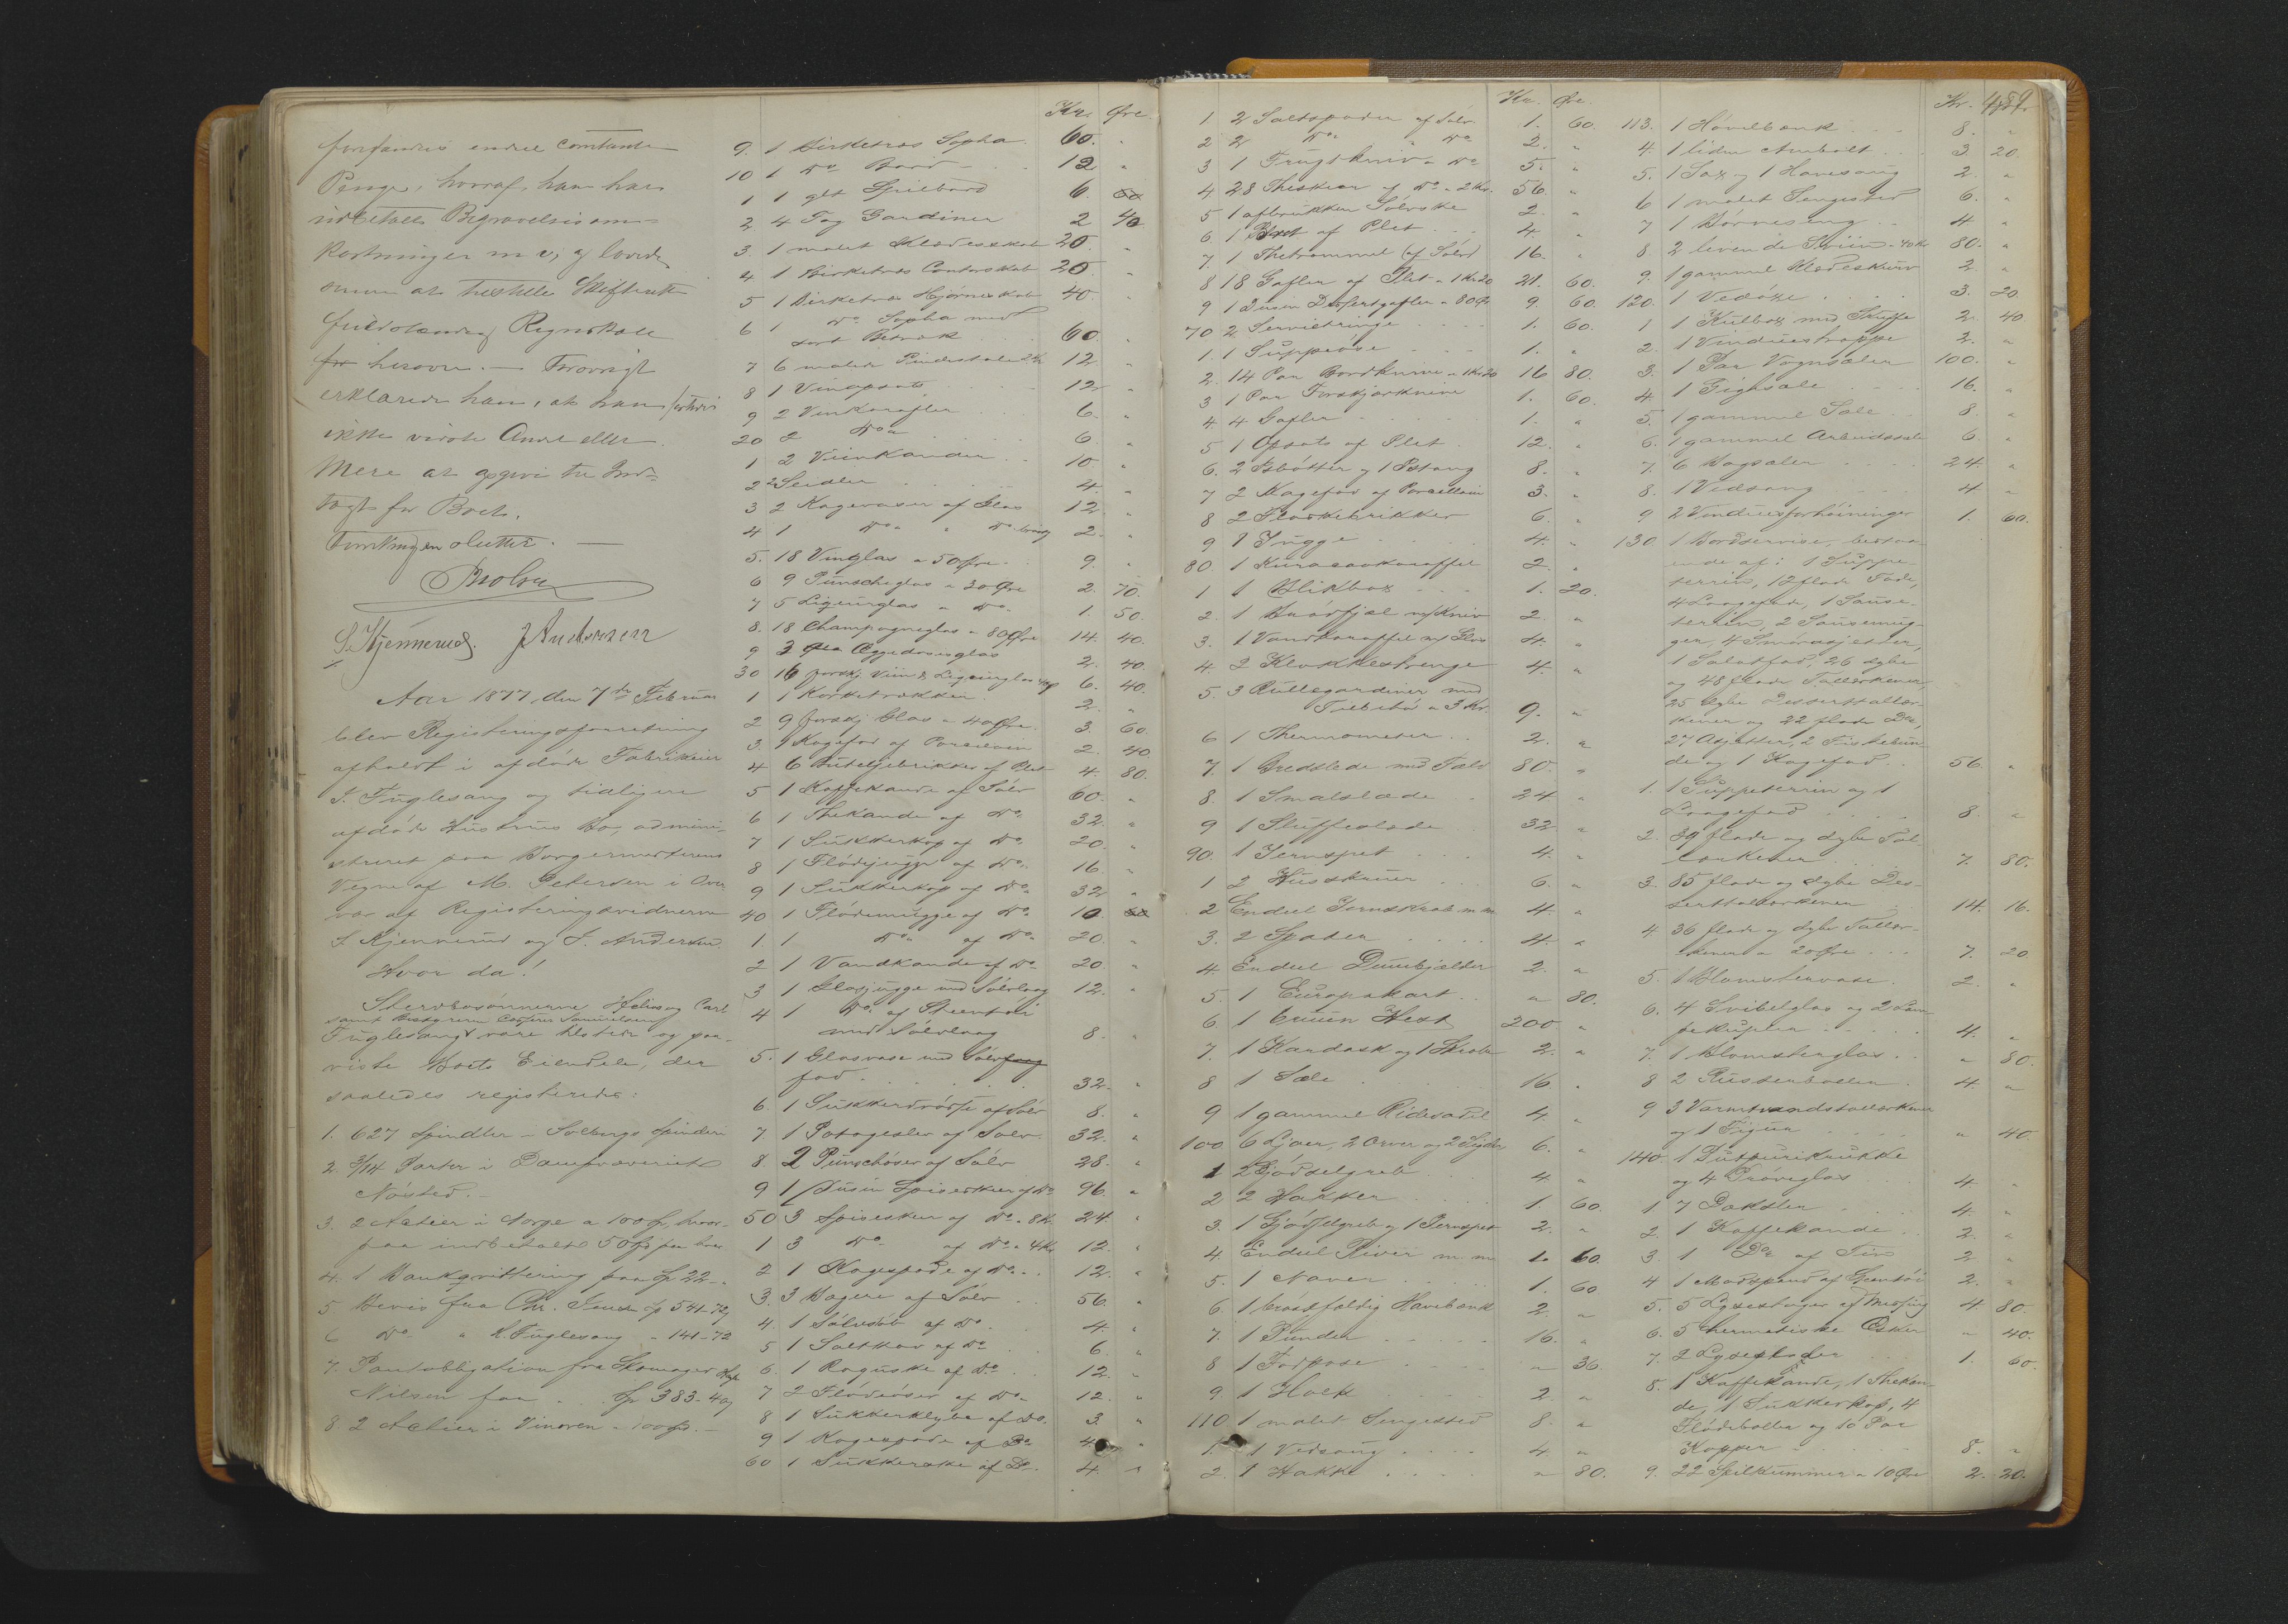 forefandtes endeel contante
Penge, hvoraf han har
udbetalt Begravelsesom-
kostninger m. v., og lovede
at tilstille Skifteretten
fuldstændig Regnskab
for herover. — Forøvrigt
erklærede han, at han
ikke vidste Andet eller
Mere at opgive til Ind-
tægt for Boet.
Forretningen sluttet. —
S. Kjennerud. J Andersen
Aar 1877, den 7de Februar
blev Registeringsforretning
afholdt i afdøde Fabrikeier
J. Fuglesang og tidligere
afdøde Hustrus Bo, admini-
streret paa Borgermesterens
Vegne af M. Petersen i Over-
vær af Registeringsvidnerne
S Kjennerud og J. Andersen.
Hvor da!
Stervbosønnerne og Carl
samt
Fuglesang vare tilstede og paa-
viste Boets Eiendele, der
saaledes registeredes:
1. 627 Spindler i Solbergs Spinderi
2. 3/14 Parter i Dampvæveriet
Nøsted. -
3. 2 Actier i Norge a 100 Sp, hvor-
paa indbetalt 50 Sp paa hver
4. 1 Bankqvittering paa Sp 22 - "
5. Bevis fra Chr. Jensen Sp 541-72
6 Do " K. Fuglesang " 141-72
7. Pantobligation fra Skomager
Nilsen for . . Sp 383-40
8. 2 Actier i Vinoren a 100 Sp. -
Kr. Øre.
9. 1 Birketræs Sopha 60. "
10 1 Do Bord 12 "
1 1 glt Spilbord 6. 
2 4 Fag Gardiner 2 40
3. 1 malet Klædesskab 20. "
4 1 Birketræs Contorskab 20 "
5 1 Birketræs Hjørneskab 40. "
6 1 Do Sopha med
sort Betræk 60. "
7 6 malede Pindestole a 2 Kr 12. "
8 1 Vinopsats 12 "
9 2 Vinkarafler 6. "
20 2 Do 6. "
1 2 Viinkander 10. "
2 2 Seidler 4. "
3 2 Kagevaser af Glas 12. "
4 1 Do " Do 2. "
5. 18 Vinglas a 50 Øre 9. "
6 9 Punscheglas a 30 Øre 2. 70.
7 5 Liqeurglas a Do 1. 50.
8. 18 Champagneglas a 80 Øre 14. 40.
9 3 Æggedosisglas 2. 40.
30 16 forskj. Viin & Liqeurglas 6. 40.
1 1 Korketrækker 2. "
2 9 forskj Glas a 40 Øre 3. 60.
3. 1 Kagefad af Porcelain 2. 40.
4 6 Buteljebrikker af Plet 4. 80.
5 1 Kaffekande af Sølv 60. "
6 1 Thekande af Do 32. "
7 1 Sukkerkop af Do 20. "
8 1 Flødejugge af Do 16. "
9 1 Sukkerkop af Do 32. "
40 1 Flødemugge af Do 10 
1. 1 Do af Do 20. "
2 1 Vandkande af Do 20. "
3 1 Glasjugge med Sølvlaag 12. "
4 1 Do af Steentøi
med Sølvlaag 8. "
5. 1 Glasvase med Sølv
fad 32. "
6. 1 Sukkerdaase af Sølv 8. "
7 1 Potageslev af Sølv 32. "
8. 2 Punschøser af Sølv 28. "
9 1 Dusin Spiseskeer af Do 96. "
50 3 Spiseskeer af Do a 8 Kr. 24. "
1 3 Do af Do a 4 Kr 12. "
2 1 Kagespade af Do 12. "
3. 3 Bægere af Sølv 56. "
4 1 af Do 4. "
5 1 Saltkar af Do 6. "
6. 1 Raguske af Do 12. "
7 2 Flødeøser af Do 12. "
8 1 Sukkerklype af Do. 3. "
9 1 Kagespade af Do 4. "
60 1 Sukkerske af Do 4. "
Kr. Øre.
1 2 Saltspader af Sølv 1. 60.
2 2 Do " Do 2. "
3 1 Frugtkniv " Do 5. "
4. 28 Theskeer af Do a 2 Kr. 56. "
5 1 afbrukken Sølvske 2. "
6. 1 af Plet 4. "
7. 1 Thetrommel (af Sølv) 16. "
8 18 Gafler af Plet a 1 Kr 20 21. 60.
9 1 Dusin Dessertgafler a 80 Ør 9. 60.
70 2 Servietringe 1. 60.
1. 1 Suppeøse 1. "
2. 14 Par Bordknive a 1 Kr 20 16 80.
3 1 Par Forskjærknive 1. 60.
4. 4 Gafler 1. "
5 1 Opsats af Plet 12. "
6. 2 Isbøtter og 1 Istang 8. "
7 2 Kagefad af Porcellain 3. "
8 2 Flaskebrikker 6. "
9 1 Jugge 4. "
80. 1 Kuracaokaraffel 2. "
1 1 Blikbox 1. 20.
2. 1 Brødfjæl m/ Kniv 2. "
3. 1 Vandkaraffel m/ Glas 4. "
4. 2 Klokkestrenge 4. "
5. 3 Rullegardiner med
Tilbehør a 3 Kr. 9. "
6 1 Thermometer 2. "
7. 1 Bredslede med Fæld 80. "
8. 1 Smalslæde 24. "
9 1 Sluffeslæde 32. "
90. 1 Jernspet 4. "
1 2 Husskruer 6. "
2 Endeel Jernskrab m m 4. "
3. 2 Spader 4. "
4 Endeel Dumbjælder 2. "
5. 1 Europakart " 80.
6. 1 bruun Hest 200 "
7. 1 Kardask og 1 Skrabe 2. "
8 1 Sæle 16. "
9 1 gammel Ridesadel 4. "
100 6 Ljaaer, 2 Orver og 2 Sigder 6. "
1 2 Gjødselgreb 4. "
2 2 Hakker 1. 60.
3. 1 Gjødselgreb og 1 Jernspet 2. "
4 Endeel River m. m 1. 60.
5. 1 Naver 1. 60
6. 1 brøstfældig Havebænk 2. "
7. 1 Punder 16. "
8 1 Forpose " 36.
9 1 Holk 2. "
110 1 malet Sengested 8. "
1. 1 Vedsaug 4. "
2. 1 Hakke " 80.
Kr. Øre. 489.
113. 1 Høvelbænk 8. "
4. 1 liden Ambolt 3. 20.
5. 1 Sax og 1 Havesaug 2. "
6 1 malet Sengested 6. "
7 1 Børneseng 4. "
8. 2 levende Sviin a 40 Kr 80. "
9. 1 gammel Klædeskurv 2. "
120. 1 Vedøxe 3. 20
1 1 Kulbox med Skuffe 2. 40
2. 1 Vinduestrappe 2. "
3. 1 Par Vognsæler 100. "
4. 1 Gighsæle 16. "
5. 1 gammel Sæle 8. "
6. 1 gammel Arbeidssæle 6. "
7. 6 Bogsæler 24. "
8. 1 Vedsaug 4. "
9 2 Vinduesforhøininger 1. 60.
130 1 Bordservise, bestaa-
ende af: 1 Suppe-
terrin, 12 flade Fade,
4 Laagefade, 1 Sause-
terrin, 2 Sausemug-
ger, 4 Smørasjetter,
1 Salatfad, 26 dybe
og 48 flade Tallerkener,
25 dybe Desserttaller-
kener og 22 flade Do,
27 Asjetter, 2
og 1 Kagefad 56. "
1. 1 Suppeterrin og 1
Laagefad 8. "
2. 39 flade og dybe Tal-
lerkener 7. 80.
3. 85 flade og dybe Des-
serttallerkener 14. 16.
4 36 flade og dybe Taller-
kener a 20 Øre 7. 20
5. 1 Blomstervase 2. "
6. 4 Svibelglas og 2 Lam-
pekupler 4. "
7. 1 Blomsterglas " 80.
8 2 Russeboller 4. "
9 3 Varmtvandstallerkener
og 1 Figur " 40.
140. 1 Putpurikrukke
og 4 Prøveglas 4. "
1 7 4. "
2. 1 Kaffekande 2. "
3. 1 Do af Tin 2. "
4 1 Madspand af Steentøi 2. "
5. 5 Lysestager af Messing 4. 80.
6. 5 hermetiske Æsker " 40.
7. 2 1. 60.
8. 1 Kaffekande, 1 Thekan-
de, 1 Sukkerkop, 4
Flødeboller og 10 Par
Kopper 8. "
9. 22 Spilkummer a 10 Øre 2. 20.